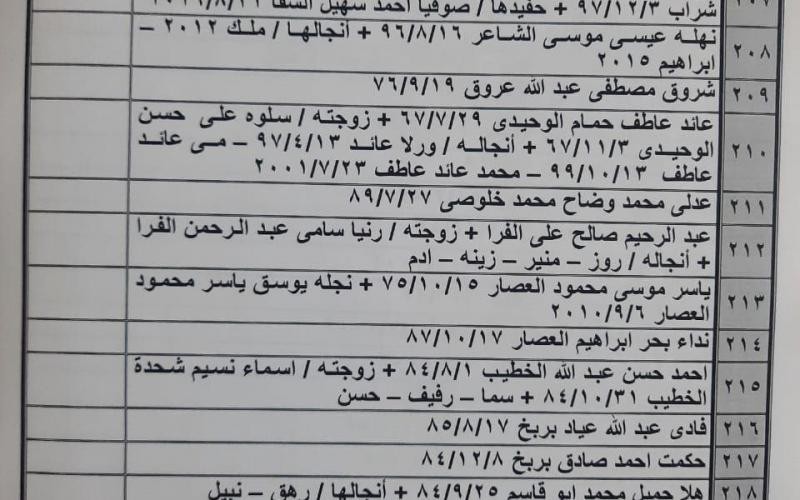 ٢٠٧ شراب ٩٧/١٢/٣ + حفيدها / صوفيا احمد سهيل السقا
٢٠٨ نهله عيسى موسى الشاعر ٩٦/٨/١٦ + أنجالها / ملك ٢٠١٢ –
ابراهيم ٢٠١٥
٢٠٩ شروق مصطفى عبد الله عروق ٧٦/٩/١٩
٢١٠ عائد عاطف حمام الوحيدى ٦٧/٧/٢٩ + زوجته / سلوه على حسن
الوحيدى ٦٧/١١/٣ + أنجاله / ورلا عائد ٩٧/٤/١٣ – مى عائد
عاطف ٩٩/١٠/١٣ – محمد عائد عاطف ٢٠٠١/٧/٢٣
٢١١ عدلى محمد وضاح محمد خلوصى ٨٩/٧/٢٧
٢١٢ عبد الرحيم صالح على الفرا + زوجته / رنيا سامى عبد الرحمن الفرا
+ أنجاله / روز – منير – زينه – ادم
٢١٣ ياسر موسى محمود العصار ٧٥/١٠/١٥ + نجله يوسق ياسر محمود
العصار ٢٠١٠/٩/٦
٢١٤ نداء بحر ابراهيم العصار ٨٧/١٠/١٧
٢١٥ احمد حسن عبد الله الخطيب ٨٤/٨/١ + زوجته / اسماء نسيم شحدة
الخطيب ٨٤/١٠/٣١ + سما – رفيف – حسن
٢١٦ فادى عبد الله عياد بربخ ٨٥/٨/١٧
٢١٧ حكمت احمد صادق بربخ ٨٤/١٢/٨
٢١٨ هلا جميل محمد ابو قاسم ٨٤/٩/٢٥ + أنجالها / رهق – نبيل